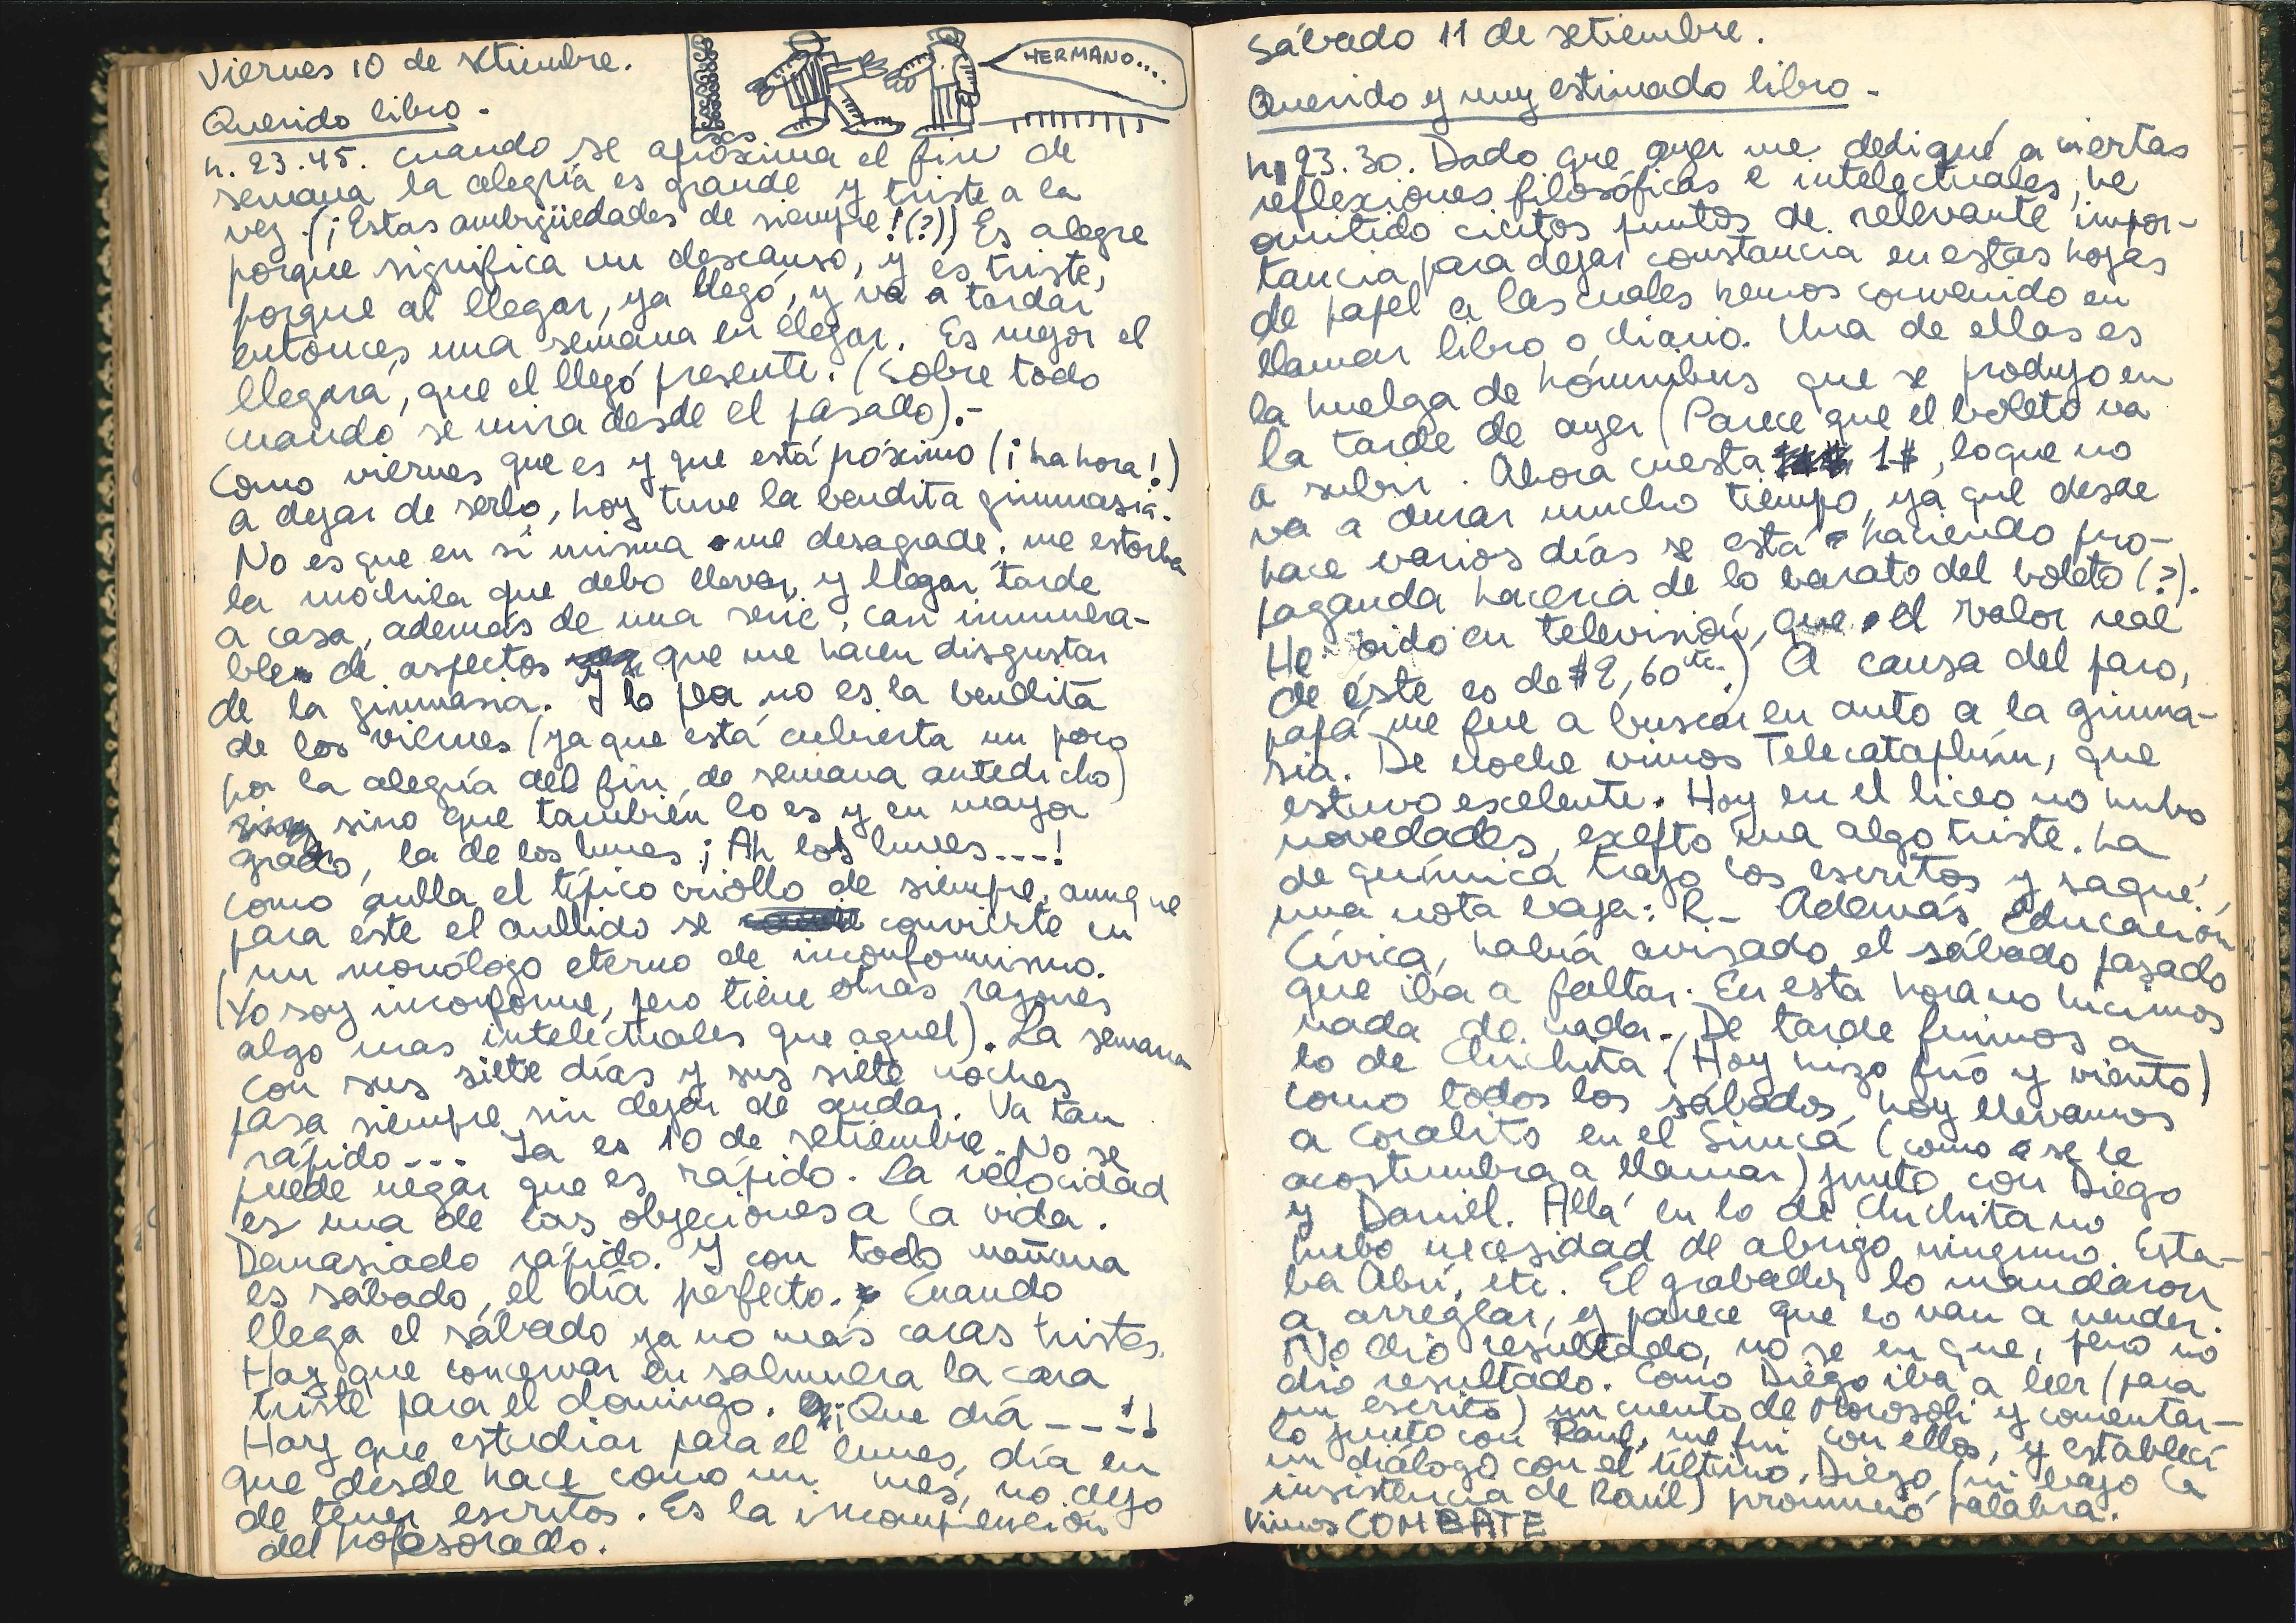 Viernes 10 de setiembre.
HERMANO....
Querido libro.-
h. 23.45. Cuando se aproxima el fin de
semana la alegría es grande y triste a la
vez. (¡Estas ambigüedades de siempre!(?)) Es alegre
porque significa un descanso, y es triste,
porque al llegar, ya llegó, y va a tardar
entonces una semana en llegar. Es mejor el
llegará, que el llegó presente. (Sobre todo
cuando se mira desde el pasado).-
Como viernes que es y que está póximo (¡ha hora!)
a dejar de serlo, hoy tuve la bendita gimnasia.
No es que en sí misma me desagrade; me estorba
la mochila que debo llevar, y llegar tarde
a casa, además de una serie, casi innumera-
ble de aspectos que me hacen disgustar
de la gimnasia. Y lo pea no es la bendita
de los viernes (ya que está cubierta un poco
por la alegría del fin de semana antedicho)
sino que también lo es y en mayor
grado, la de los lunes ¡Ah los lunes...!
como aulla el típico criollo de siempre, aunque
para éste el aullido se convierte en
un monólogo eterno de inconformismo.
(Yo soy inconforme, pero tiene otras razones
algo mas intelectuales que aquel). La semana
con sus siete días y sus siete noches
pasa siempre sin dejar de andar. Va tan
rápido... Ya es 10 de setiembre. No se
puede negar que es rápido. La velocidad
es una de las objeciones a la vida.
Demasiado rápido. Y con todo mañana
es sábado, el día perfecto. Cuando
llega el sábado ya no más caras tristes.
Hay que concervar en salmuera la cara
triste para el domingo. ¡Que día ---!
Hay que estudiar para el lunes, día en
que desde hace como un mes, no dejo
de tener escritos. Es la incompención
del profesorado.
Sábado 11 de setiembre.
Querido y muy estimado libro.-
h. 23.30. Dado que ayer me dediqué a ciertas
reflexiones filosóficas e intelectuales, he
omitido ciertos puntos de relevante impor-
tancia para dejar constancia en estas hojas
de papel a las cuales hemos convenido en
llamar libro o diario. Una de ellas es
la huelga de hómnibus que se produjo en
la tarde de ayer (Parece que el boleto va
a subir. Ahora cuesta 1$, lo que no
va a durar mucho tiempo, ya que desde
hace varios días se está haciendo pro-
paganda hacerca de lo barato del boleto (?).
He oido en televisión, que el valor real
de éste es de $2,60 etc.) A causa del paro,
papá me fue a buscar en auto a la gimna-
sia. De noche vimos Telecataplúm, que
estuvo escelente. Hoy en el liceo no hubo
novedades, exepto una algo triste. La
de química trajo los escritos y saqué
una nota baja: R- Además, Educación
Cívica, había avisado el sábado pasado
que iba a faltar. En esta hora no hicimos
nada de nada.- De tarde fuimos a
lo de Chichita. (Hoy hizo frío y viento)
Como todos los sábados, hoy llevamos
a Coralito en el Simcá (como se le
acostumbra a llamar) junto con Diego
y Daniel. Allá en lo de Chichita no
hubo necesidad de abrigo ninguno. Esta-
ba Abú, etc. El grabador lo mandaron
a arreglar, y parece que lo van a vender.
No dio resultado, no se en que, pero no
dio resultado. Como Diego iba a leer (para
un escrito) un cuento de Morosoli y comentar-
lo junto con Raúl, me fui con ellos, y establecí
un diálogo con el último. Diego, (ni bajo la
insistencia de Raúl) pronunció palabra.
Vimos COMBATE